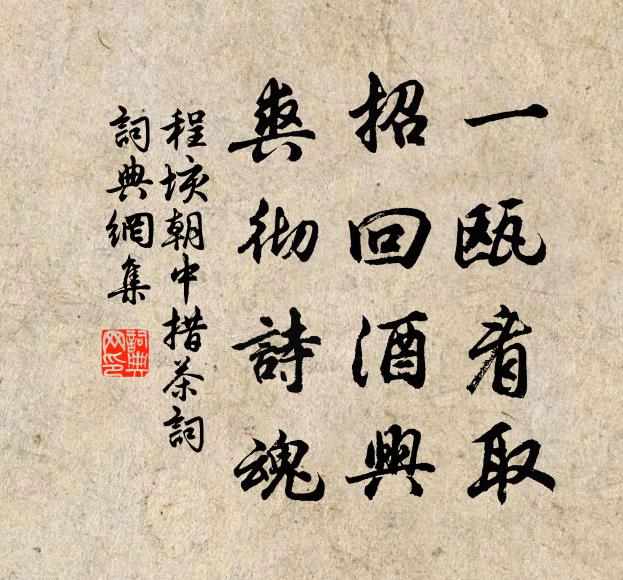 一甌看取
招回酒興
爽彻詩魂
程垓朝中措茶詞
詞典網集
詞典
网印